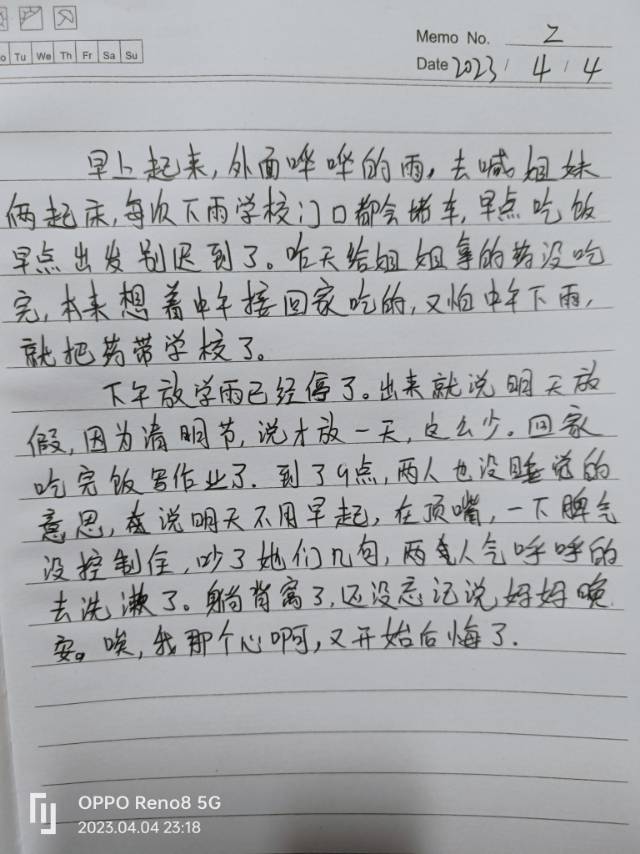 o Tu We Th Fr Sa Su
Memo No. 2
Date 2023 / 4 / 4
早上起来，外面哗哗的雨，去喊姐妹
俩起床，每次下雨学校门口都会堵车，早点吃饭
早点出发别迟到了。昨天给姐姐拿的药没吃
完，本来想着中午接回家吃的，又怕中午下雨，
就把药带学校了。
下午放学雨已经停了。出来就说明天放
假，因为清明节，说才放一天，这么少。回家
吃完饭写作业了．到了9点，两人也没睡觉的
意思，在说明天不用早起，在顶嘴，一下脾气
没控制住，吵了她们几句，两人气呼呼的
去洗漱了。躺背窝了，还没忘记说妈妈晚
安。唉，我那个心啊，又开始后悔了．
OPPO Reno8 5G
2023.04.04 23:18